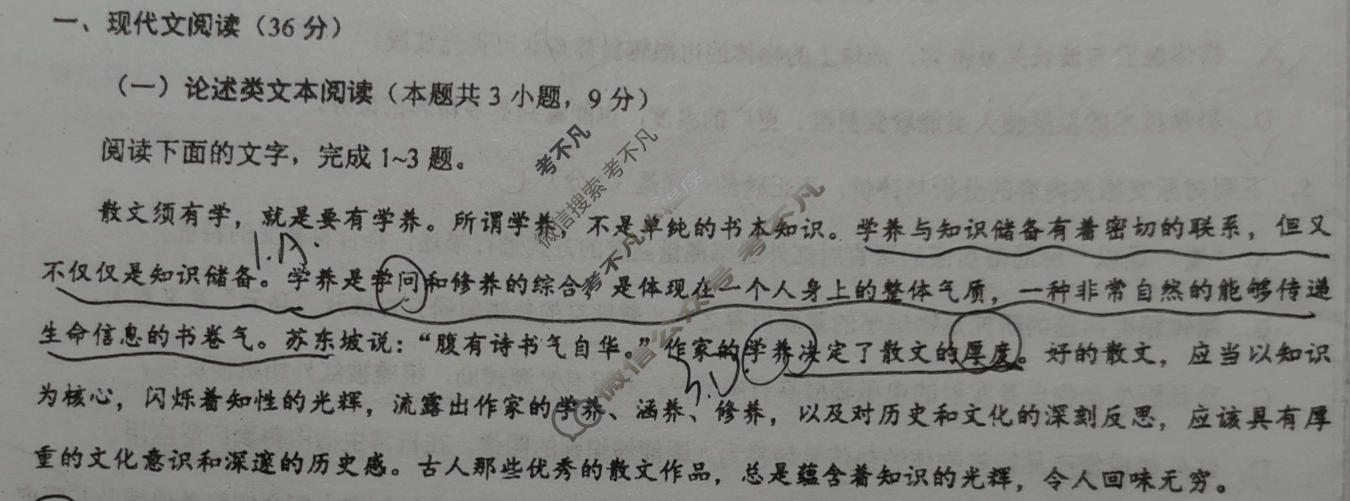 一、现代文阅读（36 分）
（一）论述类文本阅读（本题共 3 小题，9 分）
阅读下面的文字，完成 1~3 题。
散文须有学，就是要有学养。所谓学养，不是单纯的书本知识。学养与知识储备有着密切的联系，但又
不仅仅是知识储备。学养是学问和修养的综合，是体现在一个人身上的整体气质，一种非常自然的能够传递
生命信息的书卷气。苏东坡说：“腹有诗书气自华。”作家的学养决定了散文的厚度。好的散文，应当以知识
为核心，闪烁着知性的光辉，流露出作家的学养、涵养、修养，以及对历史和文化的深刻反思，应该具有厚
重的文化意识和深邃的历史感。古人那些优秀的散文作品，总是蕴含着知识的光辉，令人回味无穷。
考不凡
微信搜索 考不凡
微信公众号 考不凡